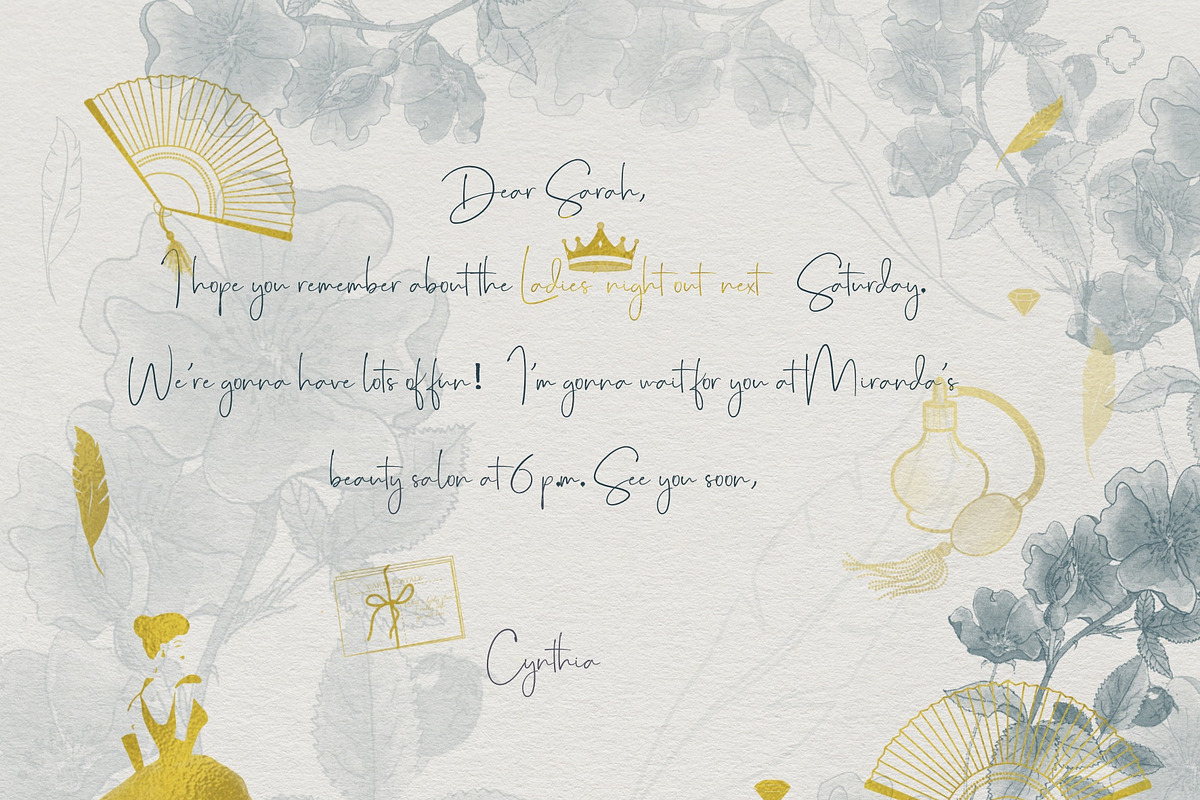 Dear Sarah,
I hope you remember about the Ladies' night out next Saturday.
We're gonna have lots of fun! I'm gonna wait for you at Miranda's
beauty salon at 6 p.m. See you soon,
Cynthia